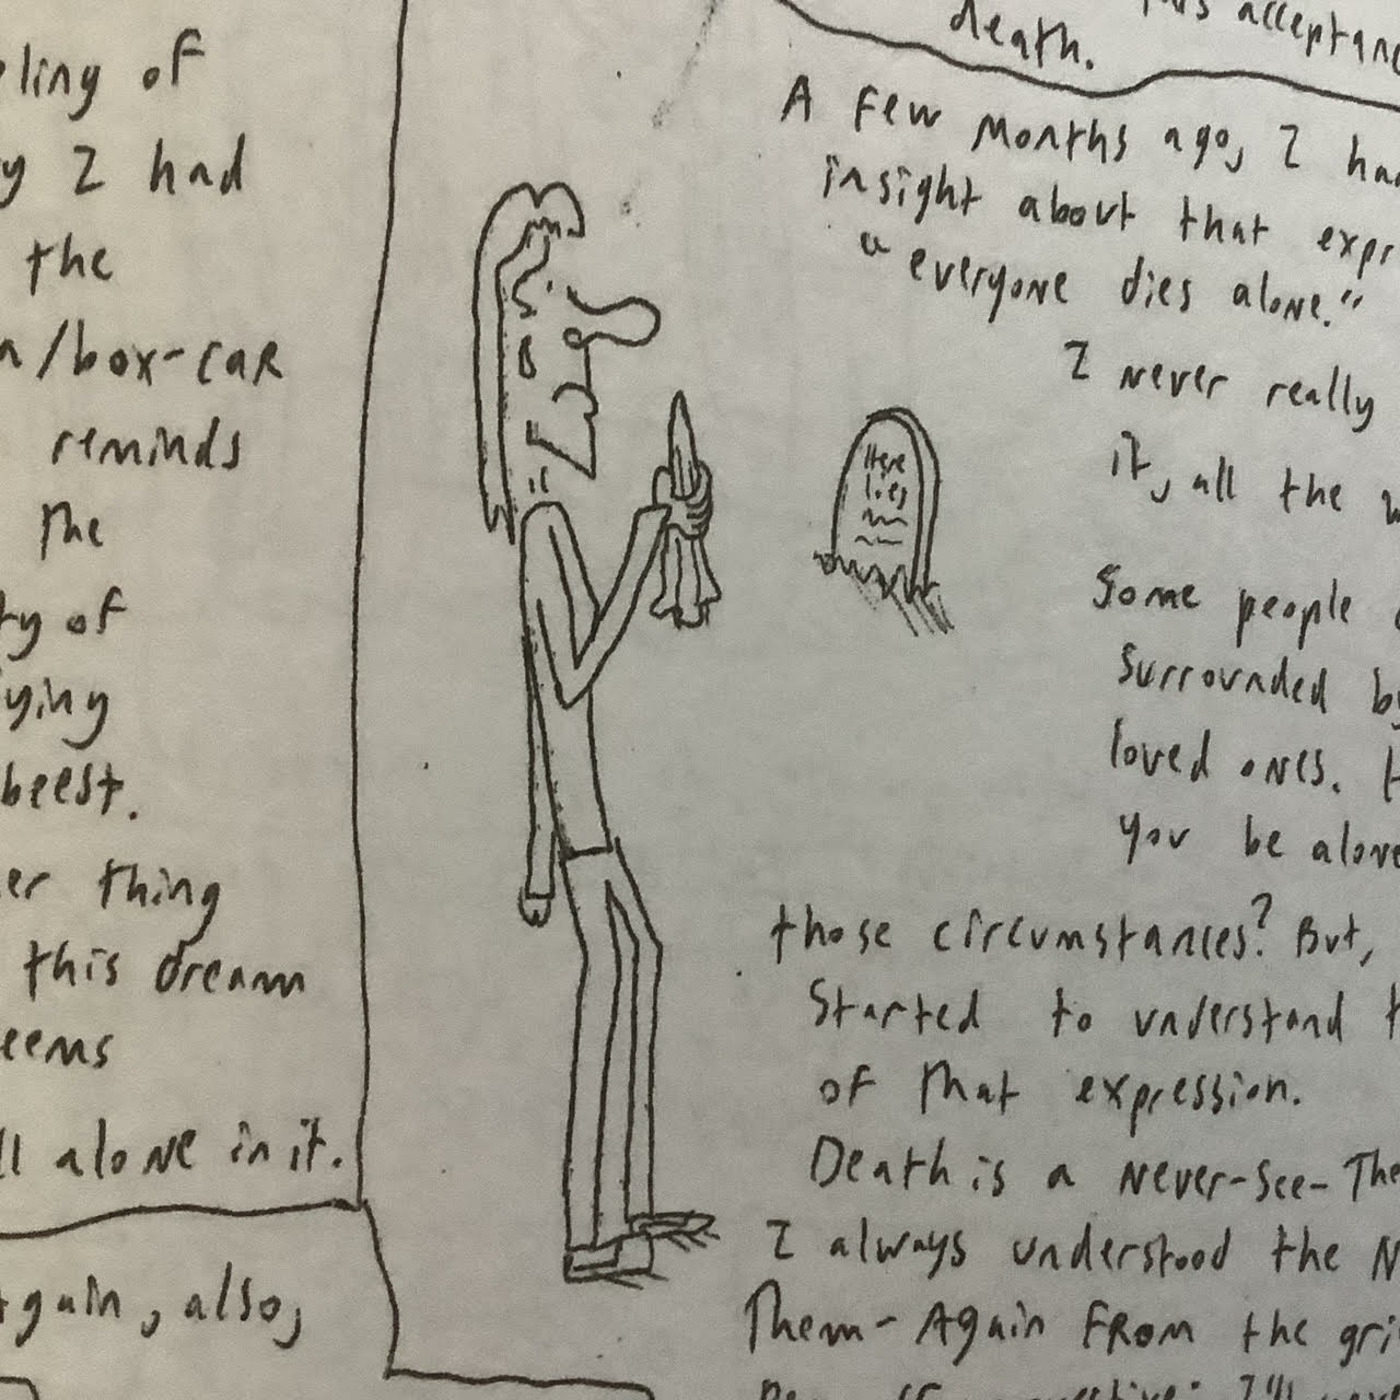 ling of
y I had
the
/box-car
reminds
The
ty of
ying
beest.
er thing
this dream
eems
ll alone in it.
Again, also,
this acceptance
death.
A few months ago, I had
insight about that expr
"everyone dies alone."
I never really
it, all the
Some people
surrounded by
loved ones. H
you be alone
those circumstances? But,
started to understand t
of that expression.
Death is a Never-See-The
I always understood the N
Them-Again from the gri
Here
lies